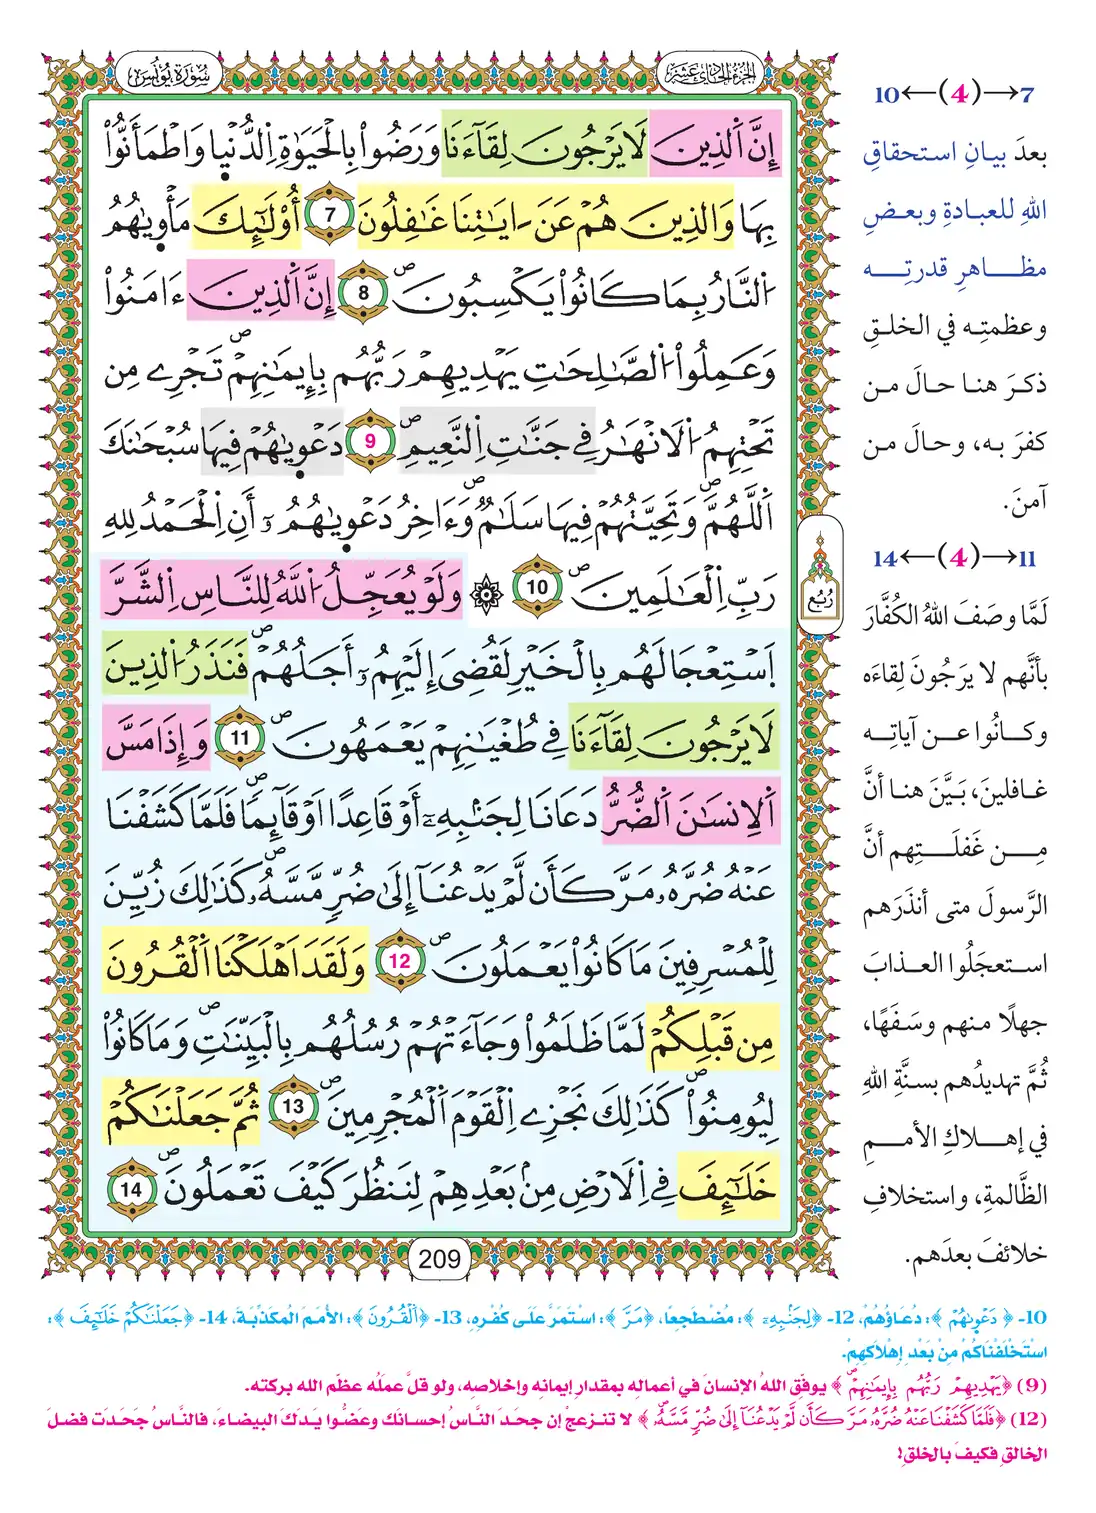 سُورَةُ يُونُسَ
الجزء الحادي عشر
إِنَّ اَ۬لذِينَ لَا يَرْجُونَ لِقَآءَنَا وَرَضُواْ بِالْحَيَوٰةِ اِ۬لدُّنْي۪ا وَاطْمَأَنُّواْ
بِهَا وَالذِينَ هُمْ عَنَ ـايَٰتِنَا غَٰفِلُونَ 7 أُوْلَٰٓئِكَ مَأْو۪يٰهُمُ
اُ۬لنَّارُ بِمَا كَانُواْ يَكْسِبُونَۖ 8 إِنَّ اَ۬لذِينَ ءَامَنُواْ
وَعَمِلُواْ اُ۬لصَّٰلِحَٰتِ يَهْدِيهِمْ رَبُّهُم بِإِيمَٰنِهِمْۖ تَجْرِے مِن
تَحْتِهِمُ اُ۬لَانْهَٰرُ فِي جَنَّٰتِ اِ۬لنَّعِيمِۖ 9 دَعْو۪يٰهُمْ فِيهَا سُبْحَٰنَكَ
اَ۬للَّهُمَّۖ وَتَحِيَّتُهُمْ فِيهَا سَلَٰمٌۖ وَءَاخِرُ دَعْو۪يٰهُمُۥٓ أَنِ اِ۬لْحَمْدُ لِلهِ
رَبِّ اِ۬لْعَٰلَمِينَۖ 10 ۞ وَلَوْ يُعَجِّلُ اُ۬للَّهُ لِلنَّاسِ اِ۬لشَّرَّ
اَ۪سْتِعْجَالَهُم بِالْخَيْرِ لَقُضِيَ إِلَيْهِمُۥٓ أَجَلُهُمْۖ فَنَذَرُ اُ۬لذِينَ
لَا يَرْجُونَ لِقَآءَنَا فِي طُغْيَٰنِهِمْ يَعْمَهُونَۖ 11 وَإِذَا مَسَّ
اَ۬لِانسَٰنَ اَ۬لضُّرُّ دَعَانَا لِجَنۢبِهِۦٓ أَوْ قَاعِدًا اَوْ قَآئِمٗاۖ فَلَمَّا كَشَفْنَا
عَنْهُ ضُرَّهُۥ مَرَّ كَأَن لَّمْ يَدْعُنَآ إِلَىٰ ضُرّٖ مَّسَّهُۥۖ كَذَٰلِكَ زُيِّنَ
لِلْمُسْرِفِينَ مَا كَانُواْ يَعْمَلُونَۖ 12 وَلَقَدَ اَهْلَكْنَا اَ۬لْقُرُونَ
مِن قَبْلِكُمْ لَمَّا ظَلَمُواْ وَجَآءَتْهُمْ رُسُلُهُم بِالْبَيِّنَٰتِۖ وَمَا كَانُواْ
لِيُومِنُواْۖ كَذَٰلِكَ نَجْزِے اِ۬لْقَوْمَ اَ۬لْمُجْرِمِينَۖ 13 ثُمَّ جَعَلْنَٰكُمْ
خَلَٰٓئِفَ فِي اِ۬لَارْضِ مِنۢ بَعْدِهِمْ لِنَنظُرَ كَيْفَ تَعْمَلُونَۖ 14
رُبُع
209
7→(4)←10
بعدَ بيـانِ استحقاقِ
اللهِ للعبـادةِ وبعـضِ
مظـاهرِ قدرتِـه
وعظمتِـه في الخلـقِ
ذكـرَ هنـا حـالَ مـن
كفرَ بـه، وحـالَ مـن
آمنَ.
11→(4)←14
لَمَّا وصَفَ اللهُ الكُفَّارَ
بأنَّهم لا يَرجُونَ لِقاءَه
وكـانُوا عـن آياتِـه
غـافلينَ، بَـيَّنَ هنـا أنَّ
مِـن غَفلَـتِهم أنَّ
الرَّسولَ متى أنذَرَهم
استعجَلُوا العـذابَ
جهلًا منهم وسَفَهًا،
ثُمَّ تهديدُهم بسنَّةِ اللهِ
في إهـلاكِ الأمـمِ
الظَّالمةِ، واستخلافِ
خلائفَ بعدَهم.
10- ﴿دَعْو۪يٰهُمْ﴾: دُعَاؤُهُمْ، 12- ﴿لِجَنۢبِهِۦٓ﴾: مُضْطَجِعًا، ﴿مَرَّ﴾: اسْتَمَرَّ عَلَى كُفْرِهِ، 13- ﴿اَ۬لْقُرُونَ﴾: الأُمَمَ المُكَذِّبَةَ، 14- ﴿جَعَلْنَٰكُمْ خَلَٰٓئِفَ﴾:
اسْتَخْلَفْنَاكُمْ مِنْ بَعْدِ إِهْلَاكِهِمْ.
(9) ﴿يَهْدِيهِمْ رَبُّهُم بِإِيمَٰنِهِمْۖ﴾ يوفِّق اللهُ الإنسانَ في أعماله بمقدارِ إيمانِه وإخلاصِه، ولو قلَّ عملُه عظّم الله بركته.
(12) ﴿فَلَمَّا كَشَفْنَا عَنْهُ ضُرَّهُۥ مَرَّ كَأَن لَّمْ يَدْعُنَآ إِلَىٰ ضُرّٖ مَّسَّهُۥۖ﴾ لا تنزعجْ إن جحدَ النَّاسُ إحسانَك وعضُّوا يدَك البيضاءَ، فالنَّاسُ جَحَدَت فضلَ
الخالقِ فكيفَ بالخلقِ!